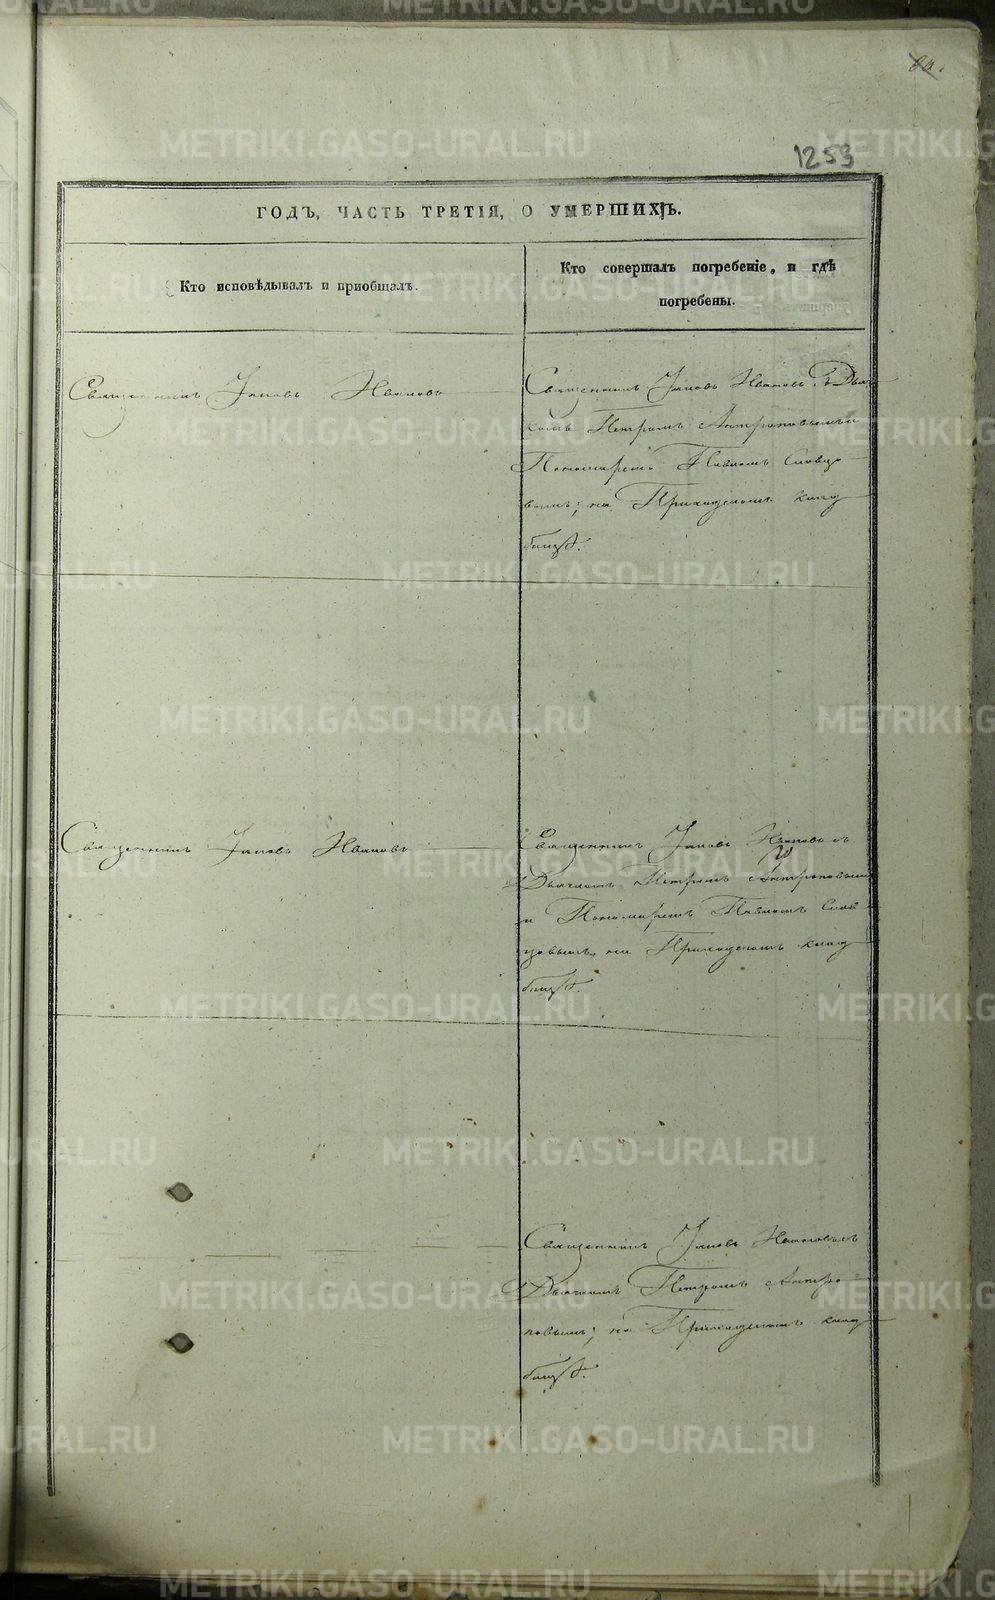 1253
ГОДЪ, ЧАСТЬ ТРЕТІЯ, О УМЕРШИХЪ.
Кто исповѣдывалъ и пріобщалъ.
Кто совершалъ погребеніе, и гдѣ
погребены.
Священникъ Іаковъ Ивановъ
Священникъ Іаковъ Ивановъ съ Дьяч
комъ Петромъ Антроповымъ и
Пономаремъ Павломъ Словцо
вымъ; на Приходскомъ клад
бищѣ.
Священникъ Іаковъ Ивановъ
Священникъ Іаковъ Ивановъ съ
Дьячкомъ Петромъ Антроповымъ
и Пономаремъ Павломъ Слов
цовымъ, на Приходскомъ клад
бищѣ.
Священникъ Іаковъ Ивановъ съ
Дьячкомъ Петромъ Антро
повымъ; на Приходскомъ клад
бищѣ.
METRIKI.GASO-URAL.RU